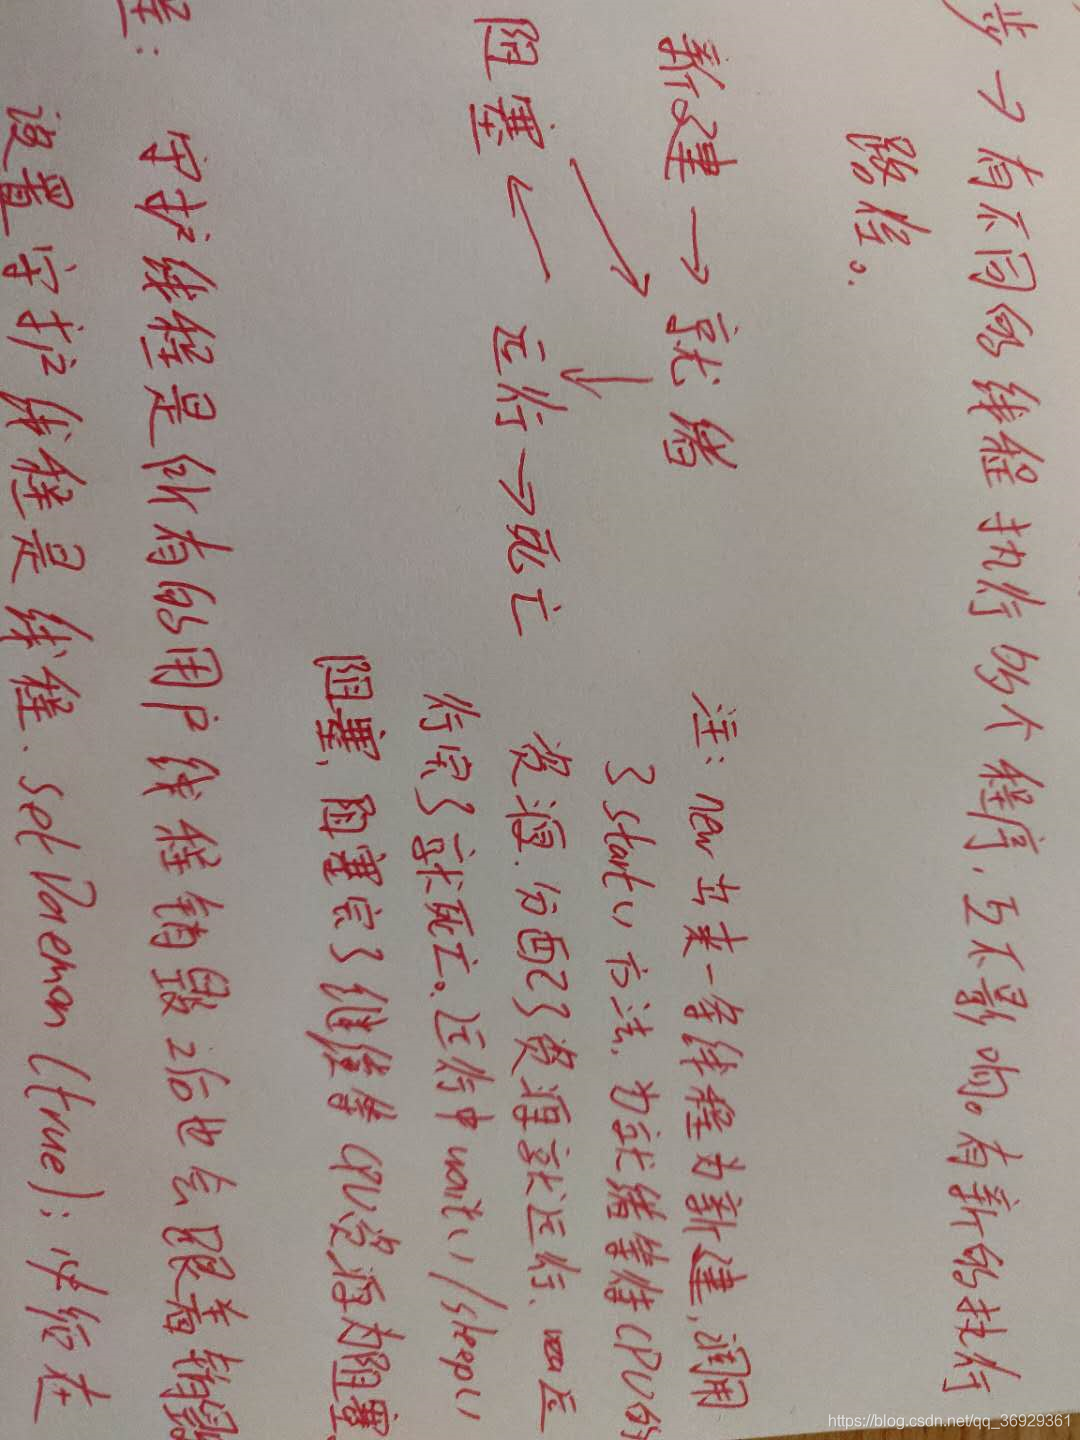 步→有不同的线程执行的个程序,互不影响。有新的执行
路径。
新建→就绪
阻塞 ← 运行→死亡
注: new 出来一条线程为新建,调用
了start()方法.为就绪等待CPU的
资源.分配了资源就运行.运
行完了就死亡。运行中wait()/sleep()
阻塞,阻塞完了继续等CPU资源为阻塞
守护线程是所有的用户线程销毁之后也会跟着销毁
程:
设置守护线程是线程.setDaemon(true);必须在
https://blog.csdn.net/qq_36929361